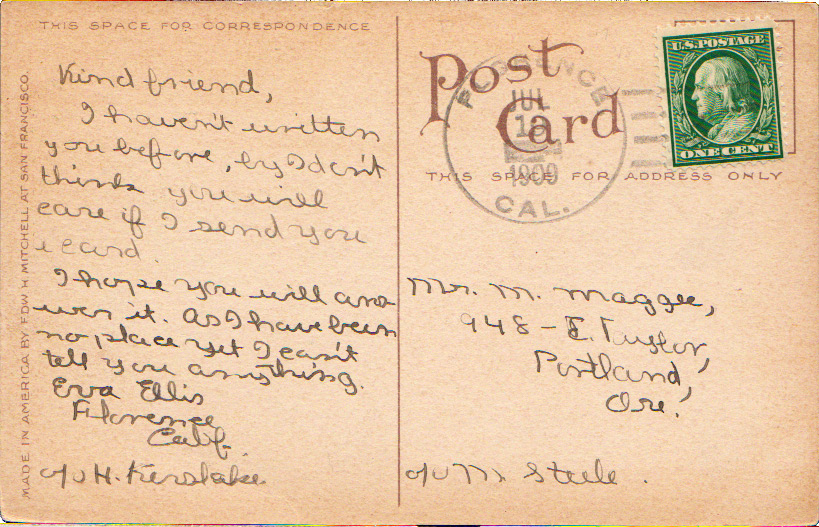 THIS SPACE FOR CORRESPONDENCE
Kind friend,
I haven't written
you before, by I don't
think you will
care if I send you
a card.
I hope you will ans
wer it. As I have been
no place yet I can't
tell you anything.
Eva Ellis
Florence
Calif.
c/o H. Kerslake
MADE IN AMERICA BY EDW H MITCHELL AT SAN FRANCISCO.
Post
Card
FLORENCE
JUL
1909
CAL.
U.S. POSTAGE
ONE CENT
THIS SPACE FOR ADDRESS ONLY
Mr. M. Maggee,
948 - E. Taylor,
Portland,
Ore.
c/o M Steele.